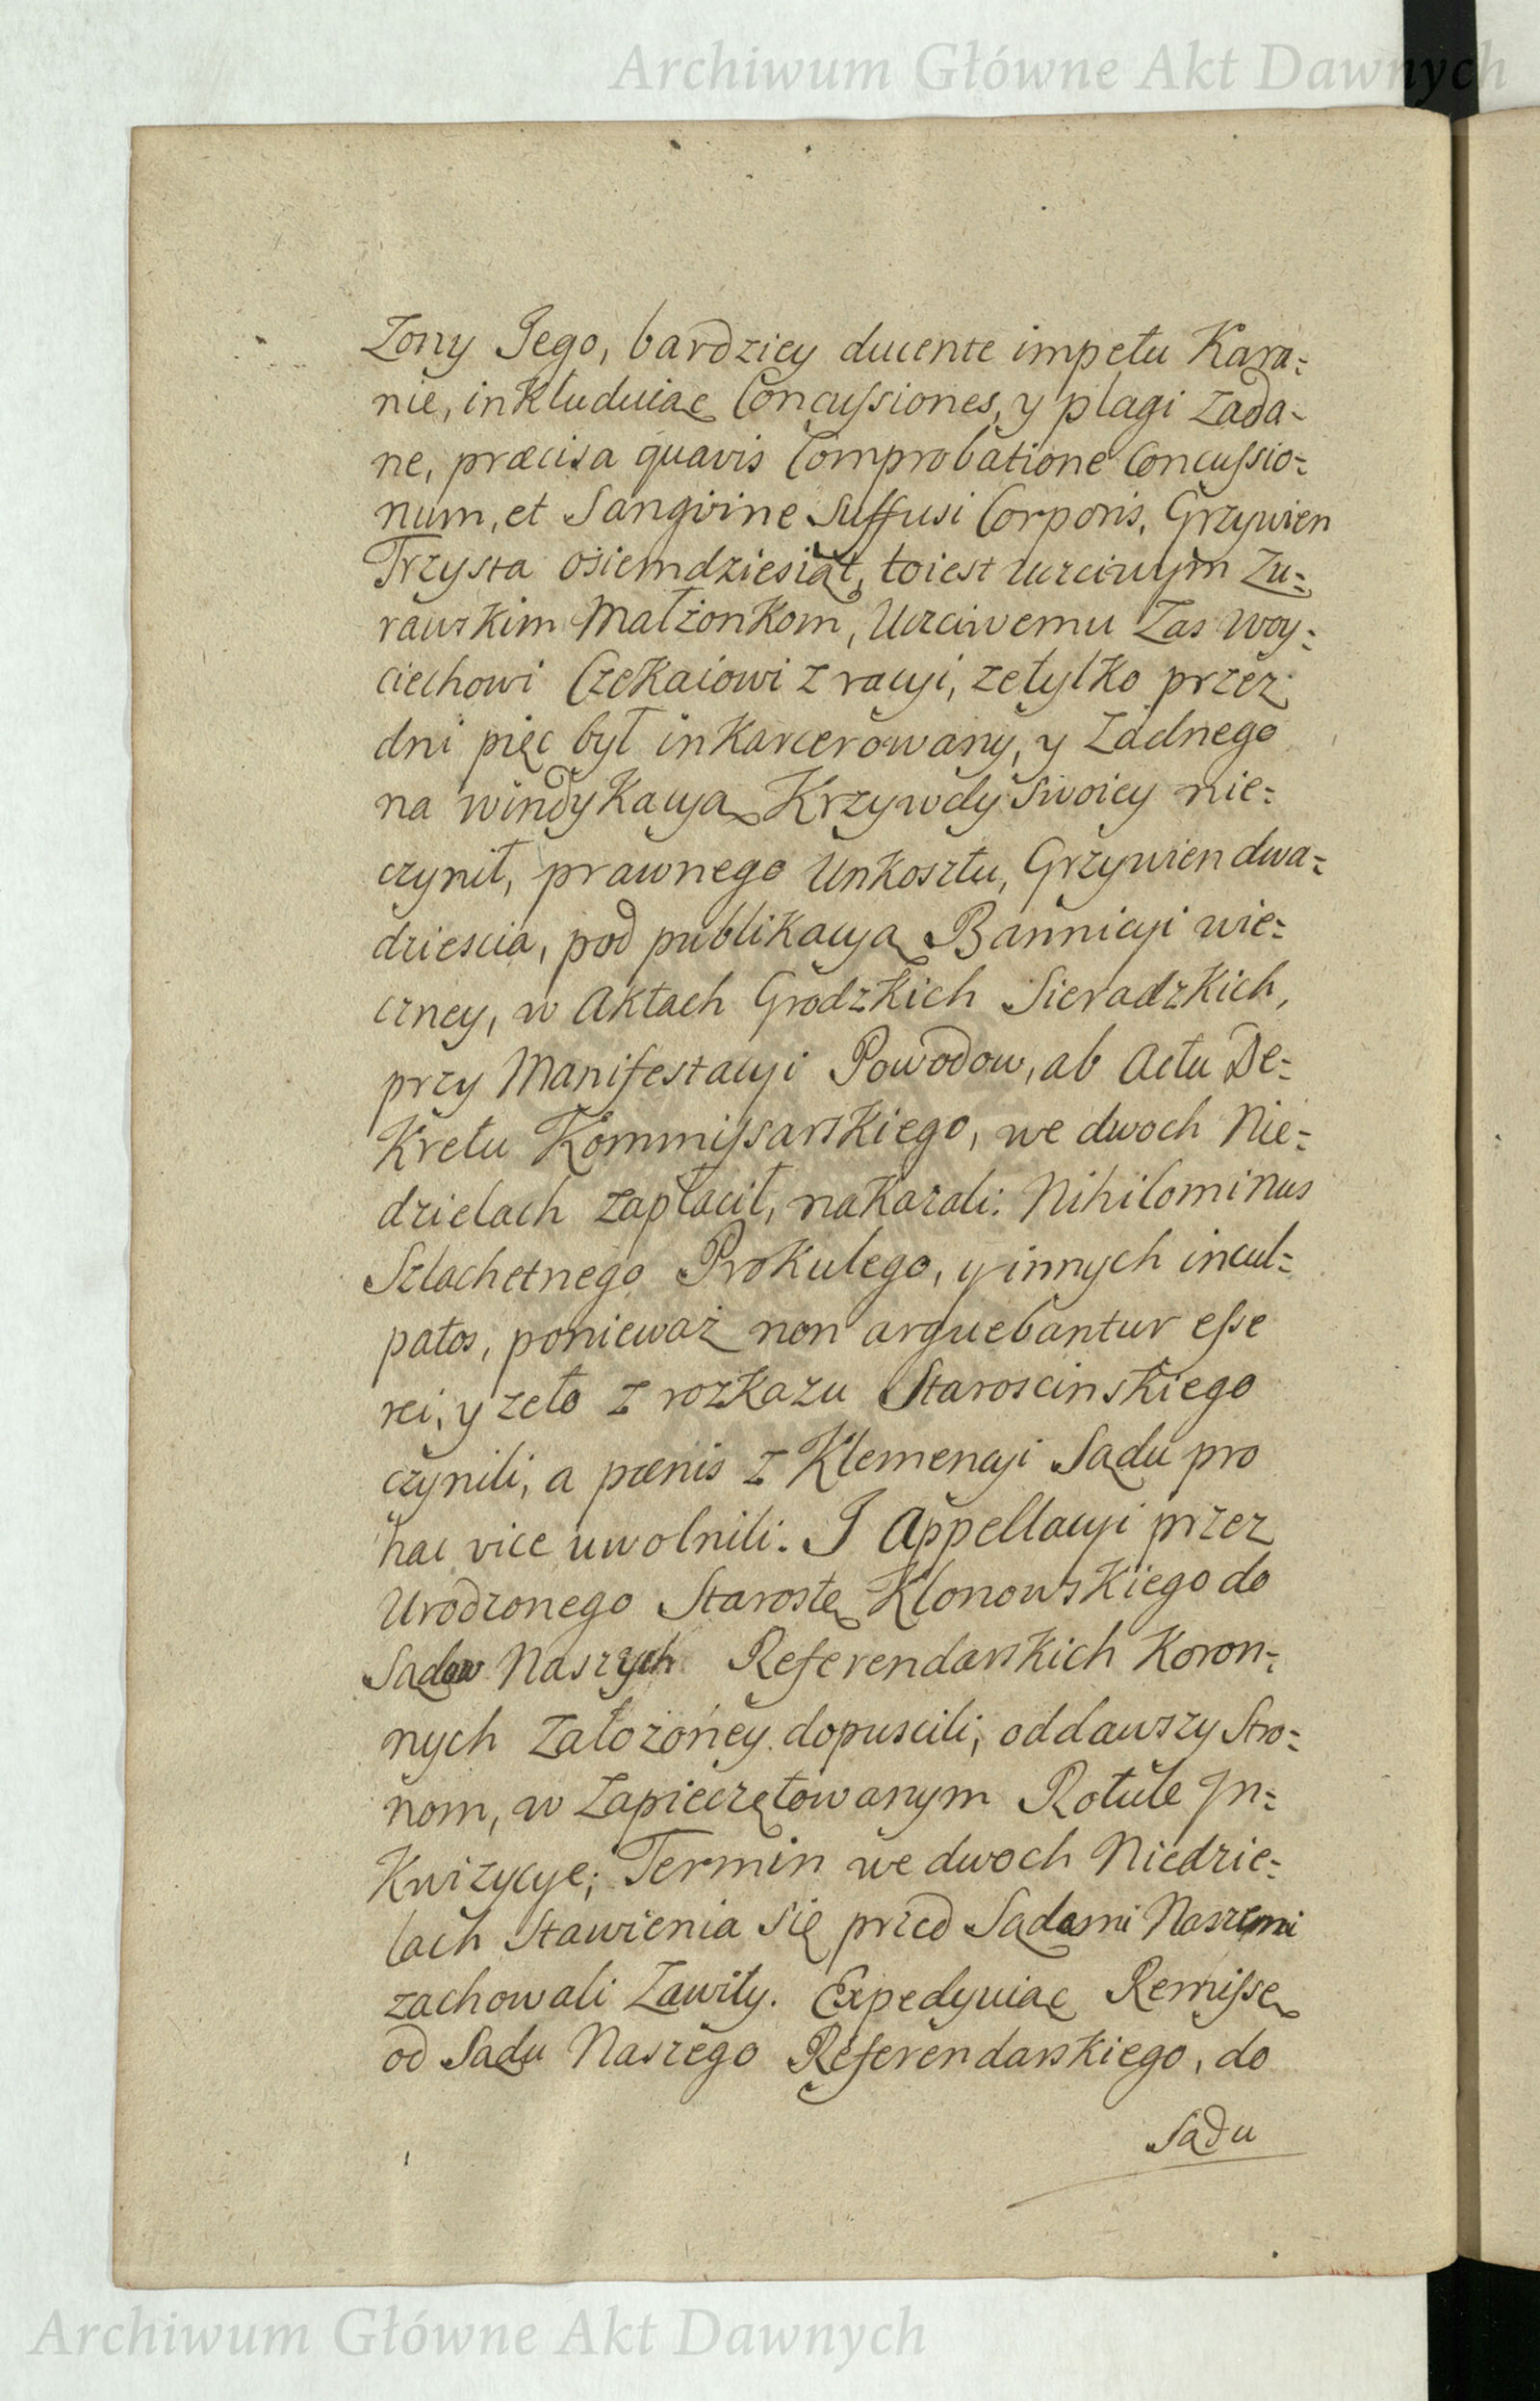 Archiwum Główne Akt Dawnych
Zony Jego, bardziey ducente impetu Kara=
nie, inkluduiąc Concussiones, y plagi zada=
ne, præcisa quavis Comprobatione Concussio=
num, et Sangvine Suffusi Corporis, Grzywien
Trzysta osiemdziesiąt, toiest Uczciwym Zu=
rawskim Małżonkom, Uczciwemu Zas Woy=
ciechowi Czekaiowi z racyi, ze tylko przez
dni pięc był inkarcerowany, y Zadnego
na windykacyą Krzywdy Swoiey nie=
czynił, prawnego Unkosztu, Grzywien dwa=
dziescia, pod publikacyą Bannicyi wie=
czney, w Aktach Grodzkich Sieradzkich,
przy Manifestacyi Powodow, ab Actu De=
kretu Kommissarskiego, we dwoch Nie=
dzielach zapłacił, nakazali: Nihilominus
Szlachetnego Prokulego, y innych incul=
patos, ponieważ non arguebantur esse
rei, y zeto z rozkazu Staroscinskiego
czynili, a pœnis z Klemencyi Sądu pro
hac vice uwolnili. J Appellacyi przez
Urodzonego Starostę Klonowskiego do
Sądow Naszych Referendarskich Koron=
nych Założoney dopuscili, oddawszy Stro=
nom, w Zapieczętowanym Rotule Jn=
kwizycye; Termin we dwoch Niedzie=
lach Stawienia się przed Sądami Naszemi
zachowali Zawity. Expedyuiąc Remissę
od Sądu Naszego Referendarskiego, do
Sądu
Archiwum Główne Akt Dawnych